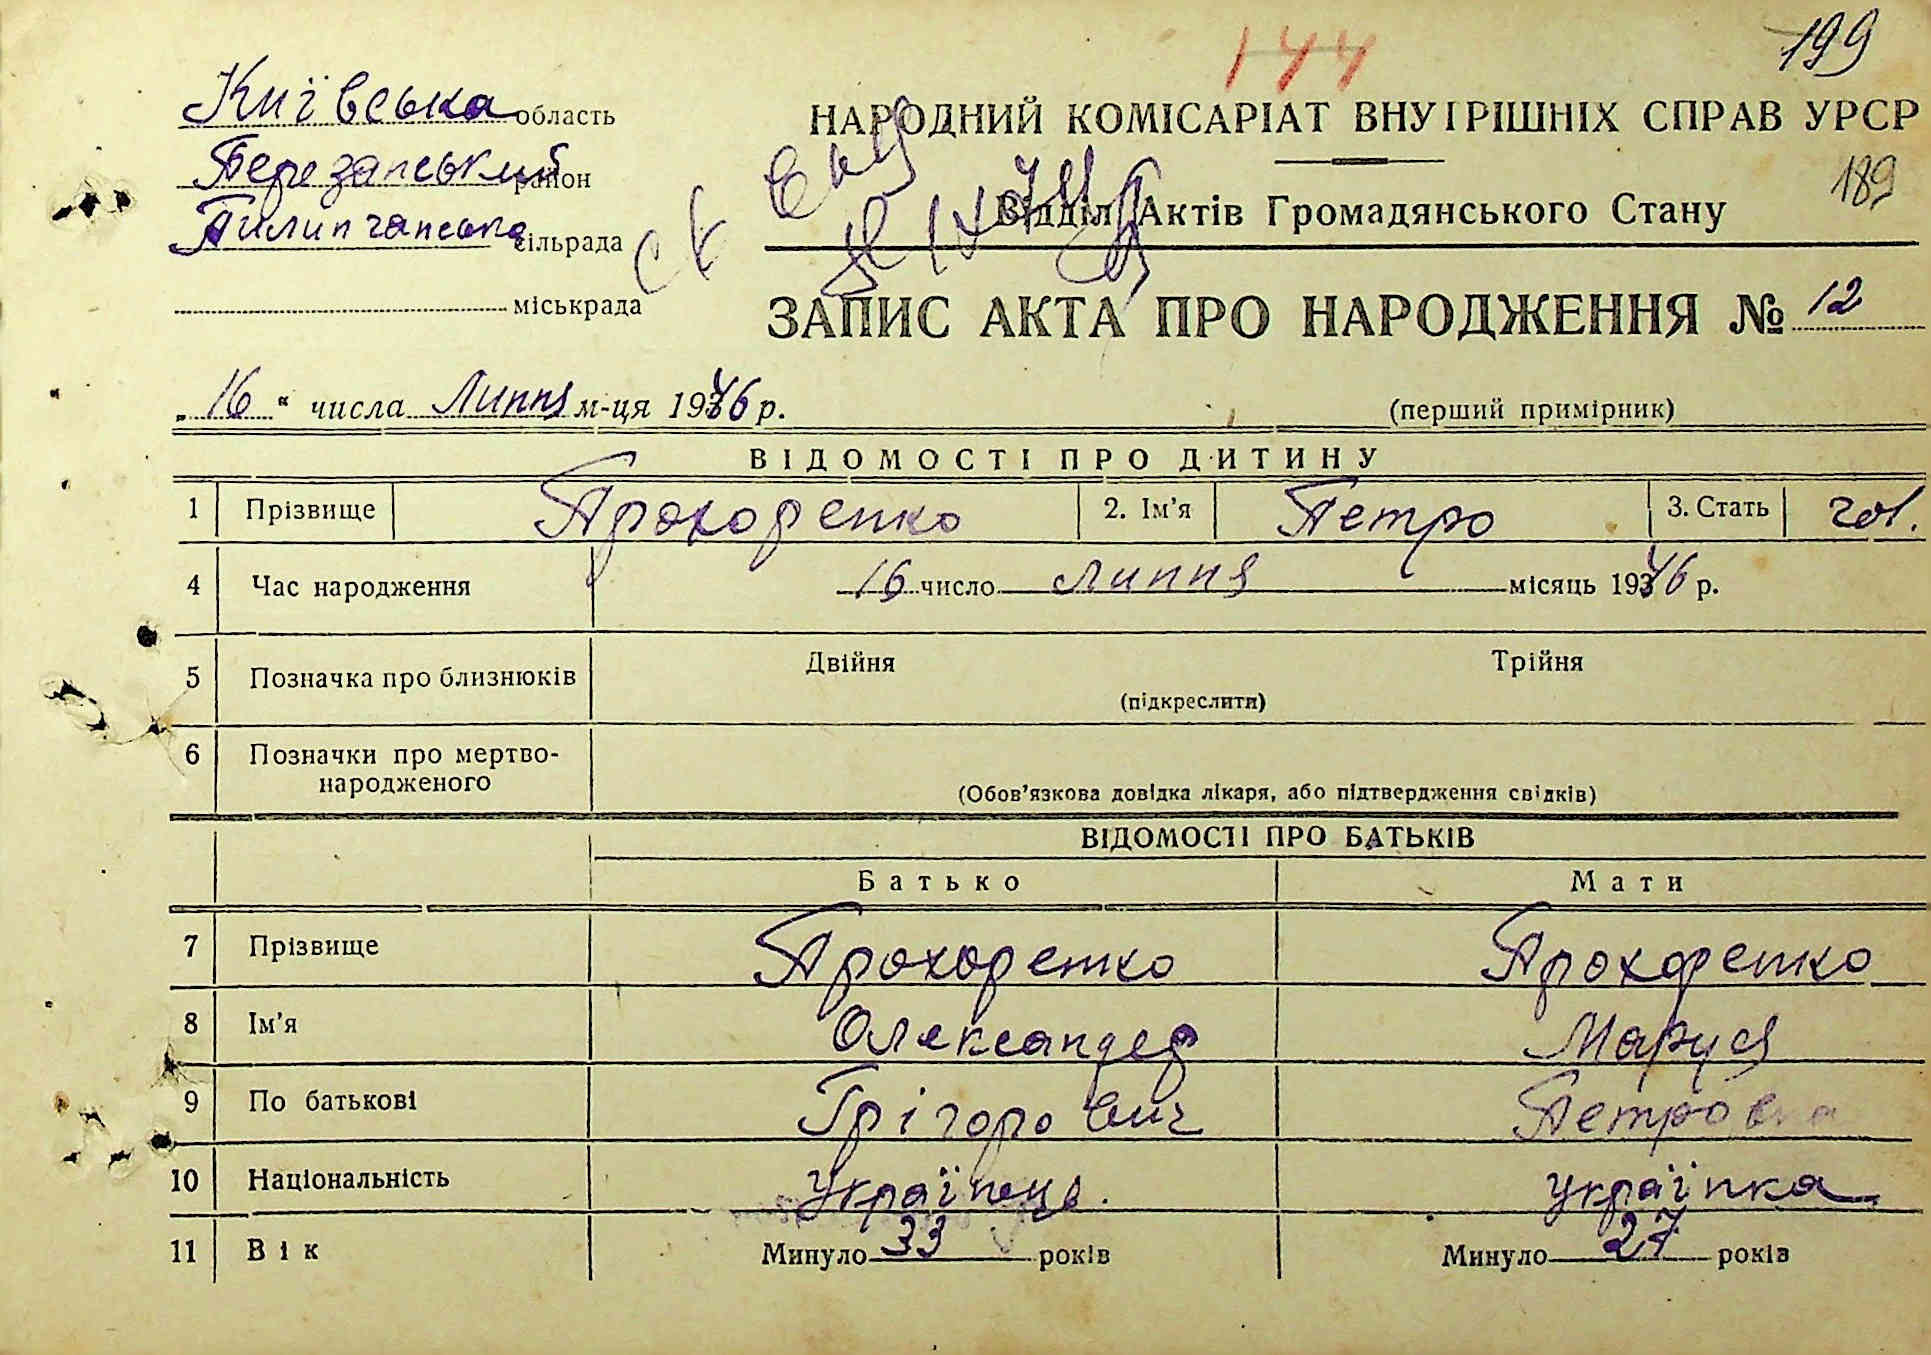 144
199
Київська область
НАРОДНИЙ КОМІСАРІАТ ВНУТРІШНІХ СПРАВ УРСР
Березанський район
189
Відділ Актів Громадянського Стану
Пилипчанська сільрада
міськрада
ЗАПИС АКТА ПРО НАРОДЖЕННЯ № 12
„16“ числа Липня м-ця 1946 р.
(перший примірник)
ВІДОМОСТІ ПРО ДИТИНУ
1 Прізвище Прохоренко 2. Ім'я Петро 3. Стать чол.
4 Час народження 16 число липня місяць 1946 р.
5 Позначка про близнюків Двійня Трійня
(підкреслити)
6 Позначки про мертво-
народженого
(Обов'язкова довідка лікаря, або підтвердження свідків)
ВІДОМОСТІ ПРО БАТЬКІВ
Батько Мати
7 Прізвище Прохоренко Прохоренко
8 Ім'я Олександер Маруся
9 По батькові Грігорович Петровна
10 Національність Українець. Українка
11 Вік Минуло 33 років Минуло 27 років